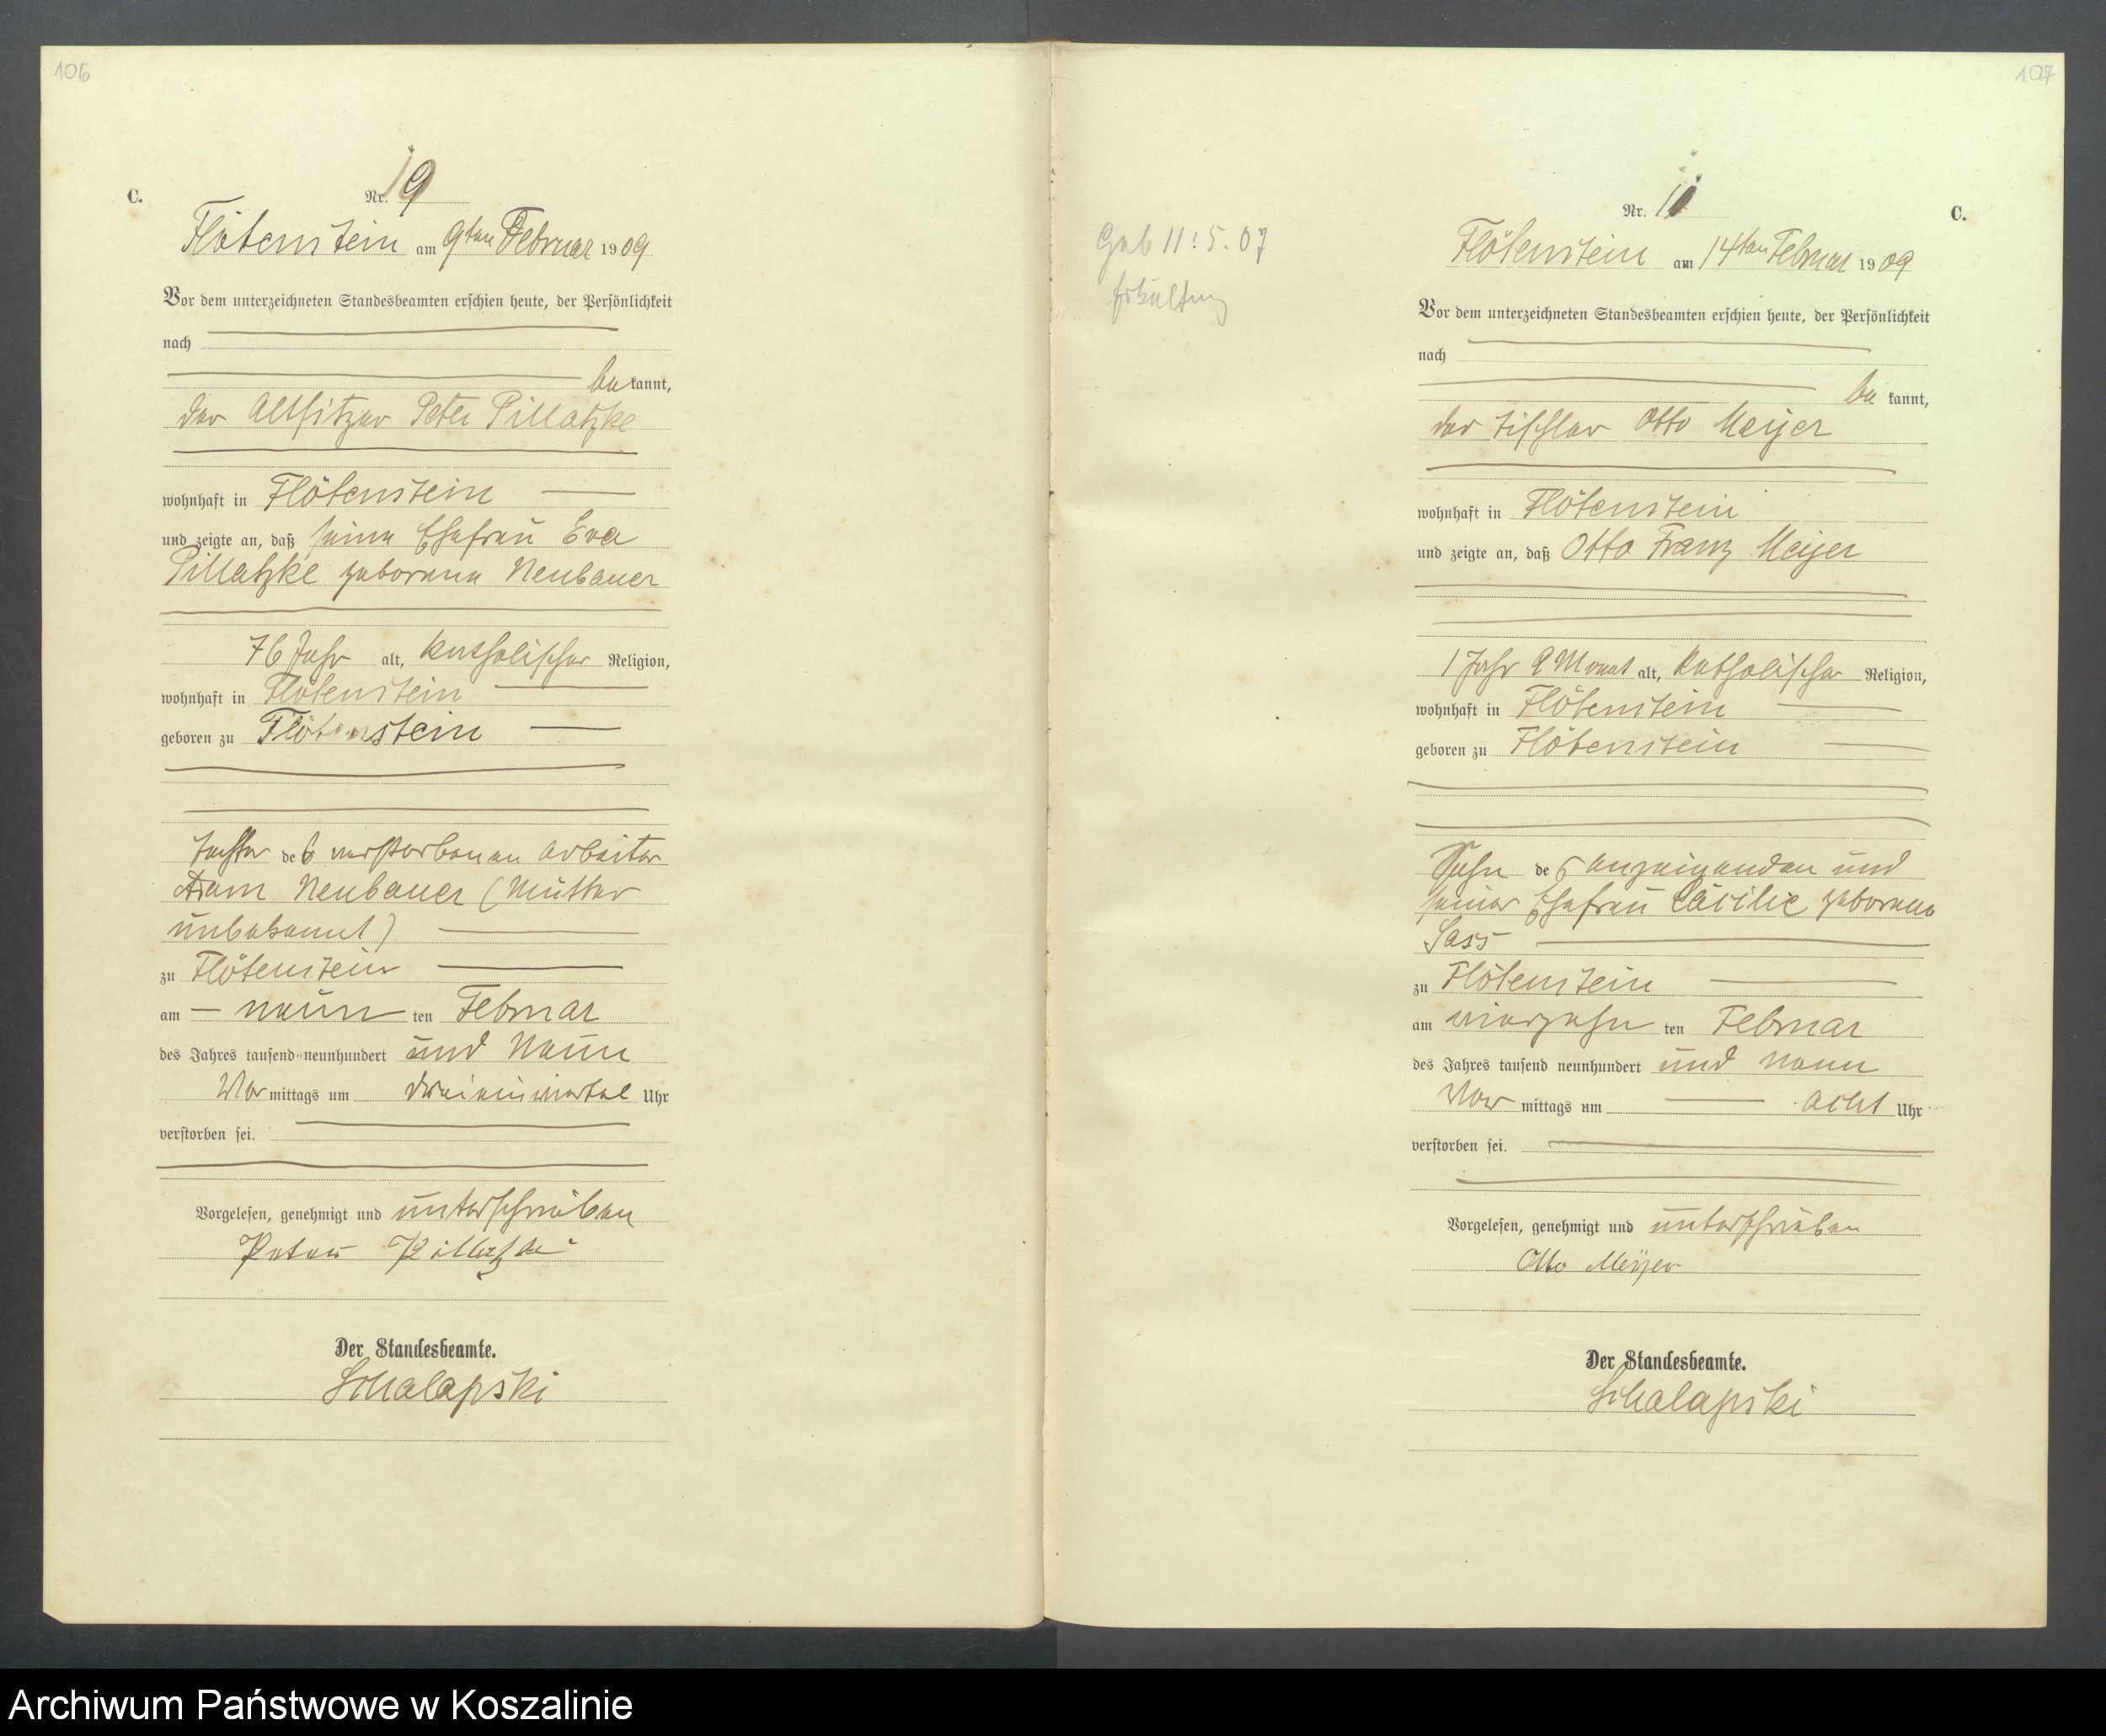 106
C.
Nr. 9
Flötenstein am 9ten Februar 1909
Vor dem unterzeichneten Standesbeamten erschien heute, der Persönlichkeit
nach
be kannt,
der Altsitzer Peter Pillatzke
wohnhaft in Flötenstein
und zeigte an, daß seine Ehefrau Eva
Pillatzke geborene Neubauer
76 Jahr alt, katholischer Religion,
wohnhaft in Flötenstein
geboren zu Flötenstein
Tochter des verstorbenen Arbeiter
Neubauer (Mutter
unbekannt)
zu Flötenstein
am neun ten Februar
des Jahres tausend neunhundert und neun
Vor mittags um Uhr
verstorben sei.
Vorgelesen, genehmigt und unterschrieben
Peter Pillatzke
Der Standesbeamte.
Schalapski
107
Geb 11.5.07
Erkältung
Nr. 10
C.
Flötenstein am 14ten Februar 1909
Vor dem unterzeichneten Standesbeamten erschien heute, der Persönlichkeit
nach
be kannt,
der Tischler Otto Meijer
wohnhaft in Flötenstein
und zeigte an, daß Otto Franz Meijer
1 Jahr 9 Monat alt, katholischer Religion,
wohnhaft in Flötenstein
geboren zu Flötenstein
Sohn des Anzeigenden und
seiner Ehefrau Cäcilie geborene
Sass
zu Flötenstein
am vierzehn ten Februar
des Jahres tausend neunhundert und neun
Vor mittags um acht Uhr
verstorben sei.
Vorgelesen, genehmigt und unterschrieben
Otto Meijer
Der Standesbeamte.
Schalapski
Archiwum Państwowe w Koszalinie